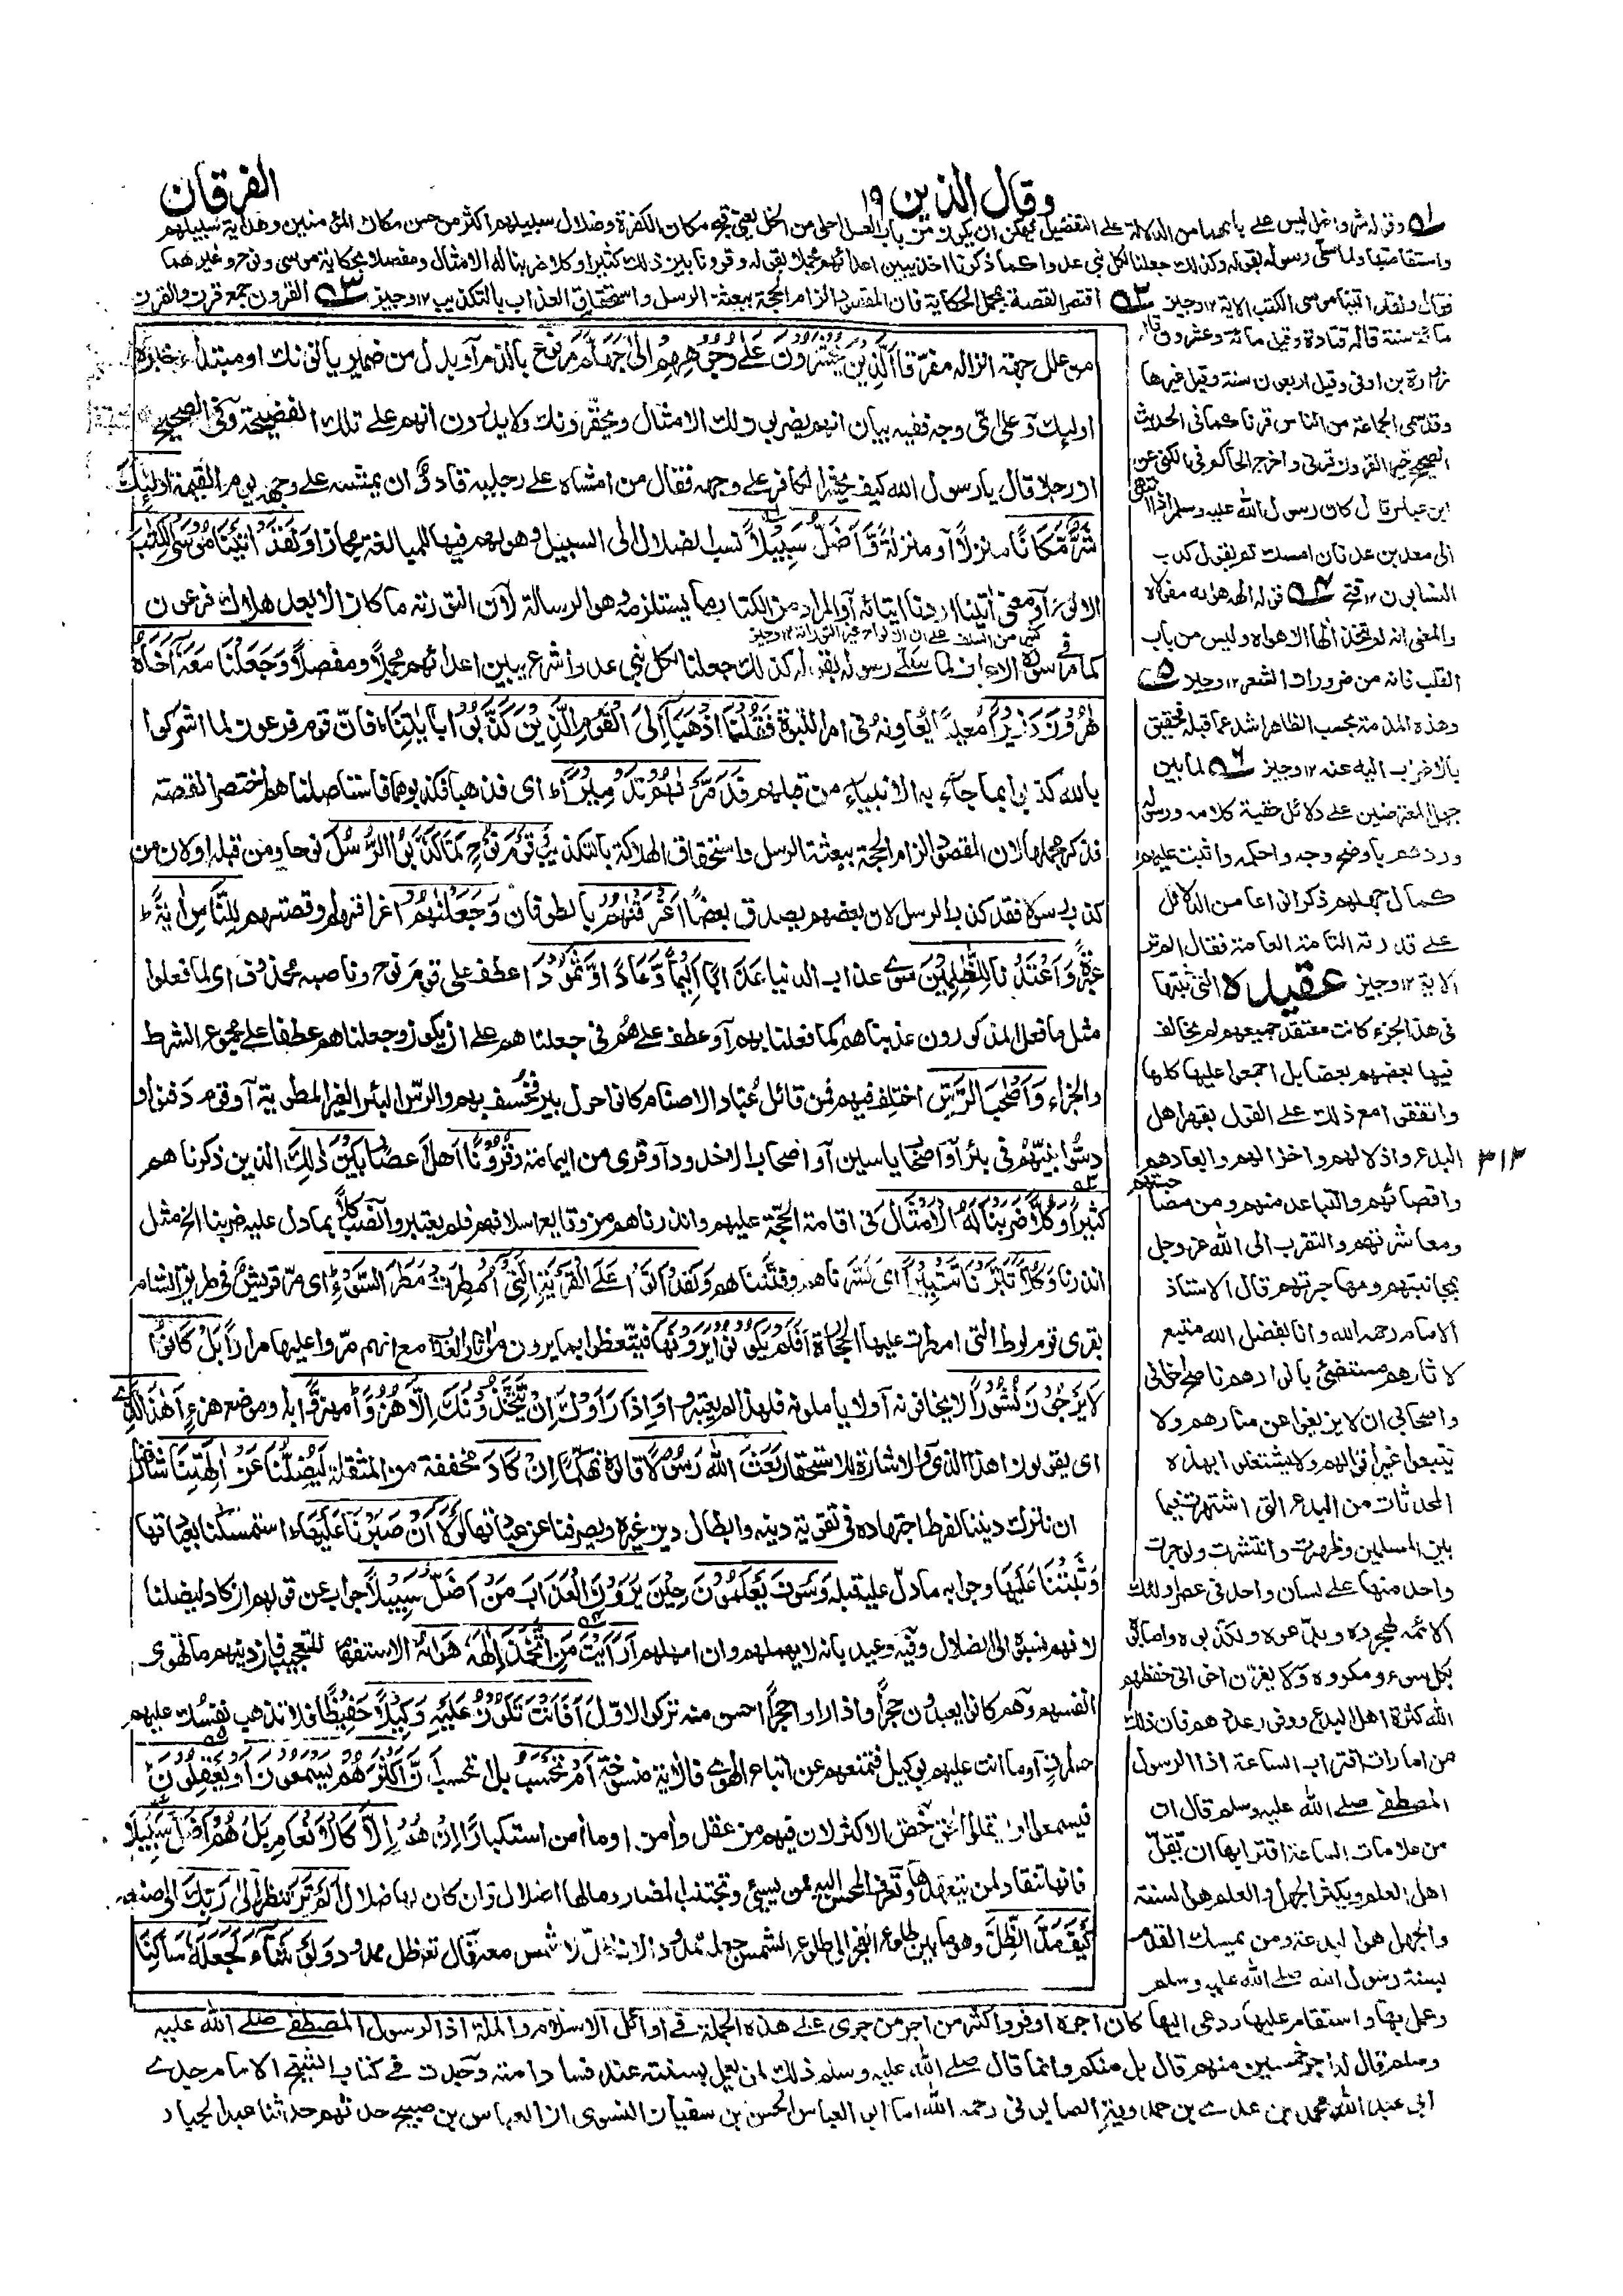 وقال الذين ١٩
الفرقان
وقوله شر واضل ليس على بابهما من الدلالة على التفضيل فيمكن ان يكون من باب العسل احلى من الخل يعني قبح مكان الكفرة وضلال سبيلهم اكثر من حسن مكان المؤمنين وهداية سبيلهم
واستقامتها ولما سلى رسوله بقوله وكذلك جعلنا لكل نبي عدوا كما ذكرنا اخذ يبين اعدائهم مجملا بقوله وقرونا بين ذلك كثيرا وكلا ضربنا له الامثال ومفصلا بحكاية موسى ونوح وغيرهما
فقال ولقد اتينا موسى الكتب الاية ١٢ وجيز اقتصر القصة بمجمل الحكاية فان المقصود الزام الحجة ببعثة الرسل واستحقاق العذاب بالتكذيب ١٢ وجيز القرون جمع قرن والقرن
من علل جهة انزاله مفرقا اَلَّذِيْنَ يُحْشَرُوْنَ عَلٰى وُجُوْهِهِمْ اِلٰى جَهَنَّمَ مرفوع بالذم او بدل من ضمير يأتونك او مبتدأ خبره
اولئك وعلى اي وجه ففيه بيان انهم يضربون لك الامثال ويحقرونك ولا يدرون انهم على تلك الفضيحة وفي الصحيح
ان رجلا قال يا رسول الله كيف يحشر الكافر على وجهه فقال من امشاه على رجليه قادر ان يمشيه على وجهه يوم القيمة اُولٰٓئِكَ
شَرٌّ مَّكَانًا منزلا او منزلة وَّاَضَلُّ سَبِيْلًا نسب الضلال الى السبيل وهو لهم فيها للمبالغة مجازا وَلَقَدْ اٰتَيْنَا مُوْسَى الْكِتٰبَ
التورٰىة او معنى اتينا اردنا ايتائه او المراد من الكتاب ما يستلزمه وهو الرسالة لان التورٰىة ما كان الا بعد هلاك فرعون
كما مر في سورة
لما سلى رسوله بقوله كذلك جعلنا لكل نبي عدوا شرع يبين اعدائهم مجملا ومفصلا وَجَعَلْنَا مَعَهٗٓ اَخَاهُ
هٰرُوْنَ وَزِيْرًا معينا يعاونه في امر النبوة فَقُلْنَا اذْهَبَآ اِلَى الْقَوْمِ الَّذِيْنَ كَذَّبُوْا بِاٰيٰتِنَا فان قوم فرعون لما اشركوا
بالله كذبوا بما جاء به الانبياء من قبلهم فَدَمَّرْنٰهُمْ تَدْمِيْرًا اي فذهبا فكذبوهما فاستاصلناهم اختصر القصة
فذكر مجملها لان المقصود الزام الحجة ببعثة الرسل واستحقاق الهلاكة بالتكذيب وَقَوْمَ نُوْحٍ لَّمَّا كَذَّبُوا الرُّسُلَ نوحا ومن قبله او لان من
كذب رسولا فقد كذب الرسل لان بعضهم يصدق بعضا اَغْرَقْنٰهُمْ بالطوفان وَجَعَلْنٰهُمْ اغراقهم او قصتهم لِلنَّاسِ اٰيَةً
عبرة وَاَعْتَدْنَا لِلظّٰلِمِيْنَ سوى عذاب الدنيا عَذَابًا اَلِيْمًا وَّعَادًا وَّثَمُوْدَا عطف على قوم نوح وناصبه محذوف اي لما فعلوا
مثل ما فعل المذكورون عذبناهم كما فعلنا بهم او عطف على هم في جعلناهم على ان يكون وجعلناهم عطفا على مجموع الشرط
والجزاء وَاَصْحٰبَ الرَّسِّ اختلف فيهم فمن قائل عُباد الاصنام كانوا حول بير فخسف بهم والرس البئر الغير المطوية او قوم دفنوا و
دسوا نبيهم في بئر او اصحاب ياسين او اصحاب الاخدود او قرى من اليمامة وَقُرُوْنًا اهل اعصار بَيْنَ ذٰلِكَ الذين ذكرناهم
كَثِيْرًا وَكُلًّا ضَرَبْنَا لَهُ الْاَمْثَالَ في اقامة الحجة عليهم وانذرناهم من وقايع اسلافهم فلم يعتبروا نصب كلا بما دل عليه ضربنا الخ مثل
انذرنا وَكُلًّا تَبَّرْنَا تَتْبِيْرًا اي كسرناهم وفتتناهم وَلَقَدْ اَتَوْا عَلَى الْقَرْيَةِ الَّتِيْٓ اُمْطِرَتْ مَطَرَ السَّوْءِ اي مر قريش في طريق الشام
بقرى قوم لوط التي امطرت عليها الحجارة اَفَلَمْ يَكُوْنُوْا يَرَوْنَهَا فيتعظوا بما يرون من اثار العذاب مع انهم مروا عليها مرارا بَلْ كَانُوْا
لَا يَرْجُوْنَ نُشُوْرًا لا يخافونه او لا يأملونه فلهذا لم يعتبروا وَاِذَا رَاَوْكَ اِنْ يَّتَّخِذُوْنَكَ اِلَّا هُزُوًا مهزوا به او موضع هزء اَهٰذَا الَّذِيْ
اي يقولون اهذا الذي والاشارة للاستحقار بَعَثَ اللهُ رَسُوْلًا قالوه تهكما اِنْ كَادَ مخففة من المثقلة لَيُضِلُّنَا عَنْ اٰلِهَتِنَا
ان نترك ديننا لفرط اجتهاده في تقوية دينه وابطال دين غيره ويصرفنا عن عبادتها لَوْلَآ اَنْ صَبَرْنَا عَلَيْهَا استمسكنا بعبادتها
وَثَبَتْنَا عَلَيْهَا وجوابه ما دل عليه قبله وَسَوْفَ يَعْلَمُوْنَ حِيْنَ يَرَوْنَ الْعَذَابَ مَنْ اَضَلُّ سَبِيْلًا جواب عن قولهم ان كاد ليضلنا
لانهم نسبوه الى الضلال وفيه وعيد بانه لا يهملهم وان امهلهم اَرَاَيْتَ مَنِ اتَّخَذَ اِلٰهَهٗ هَوٰىهُ الاستفهام للتعجيب فان دينهم ما تهوى
انفسهم وهم كانوا يعبدون حجرا واذا راوا حجرا احسن منه تركوا الاول اَفَاَنْتَ تَكُوْنُ عَلَيْهِ وَكِيْلًا حفيظا فلا تذهب نفسك عليهم
حسرات او ما انت عليهم بوكيل فتمنعهم عن اتباع الهوى فالاية منسوخة اَمْ تَحْسَبُ بل اتحسب اَنَّ اَكْثَرَهُمْ يَسْمَعُوْنَ اَوْ يَعْقِلُوْنَ
فيسمعوا او يتاملوا الحق خص الاكثر لان فيهم من عقل وامن او ما امن استكبارا اِنْ هُمْ اِلَّا كَالْاَنْعَامِ بَلْ هُمْ اَضَلُّ سَبِيْلًا
فانها تنقاد لمن يتعهدها وتعرف المحسن اليه ممن يسيئ وتجتنب المضار ومالها اضلال وان كان لها ضلال اَلَمْ تَرَ تنظر اِلٰى رَبِّكَ الى صنعه
كَيْفَ مَدَّ الظِّلَّ وهو ما بين طلوع الفجر الى طلوع الشمس جعله ممدودا لانه ظل لا شمس معه قال تعالى وظل ممدود وَلَوْ شَآءَ لَجَعَلَهٗ سَاكِنًا
مائة سنة قاله قتادة وقيل مائة وعشرون قاله
زرارة بن اوفى وقيل اربعون سنة وقيل غيرها
وقد سمى الجماعة من الناس قرنا كما في الحديث
الصحيح خير القرون قرني واخرج الحاكم في الكنى عن
ابن عباس قال كان رسول الله عليه وسلم اذا انتهى
الى معد بن عدنان امسك ثم يقول كذب
النسابون ١٢ فتح قوله الهه هواه مفعولاه
والمعنى انه لم يتخذ الها الا هواه وليس من باب
القلب فانه من ضرورات الشعر ١٢ وجيز
وهذه المذمة بحسب الظاهر اشد عما قبله فحقيق
بالاضراب اليه عنه ١٢ وجيز لما بين
جهل المعترضين على دلائل حقية كلامه ورسوله
وردهم باوضح وجه واحكمه واثبت عليهم
كمال جهلهم ذكر انواعا من الدلائل
على قدرته التامة العامة فقال الم تر
الاية ١٢ وجيز عقيدة التي ثبتها
في هذا الجزء كانت معتقد جميعهم لم يخالف
فيها بعضهم بعضا بل اجمعوا عليها كلها
واتفقوا مع ذلك على القول بقهر اهل
البدع واذلالهم واخزائهم وابعادهم
٣١٣
واقصائهم والتباعد منهم ومن مصاحبتهم
ومعاشرتهم والتقرب الى الله عز وجل
بمجانبتهم ومهاجرتهم قال الاستاذ
الامام رحمه الله وانا بفضل الله متبع
لاثارهم مستضئ بانوارهم ناصح لخواني
واصحابي ان لا يزيغوا عن منارهم ولا
يتبعوا غير اقوالهم ولا يشتغلوا بهذه
المحدثات من البدع التي اشتهرت فيما
بين المسلمين وظهرت وانتشرت ولو جرت
واحدة منها على لسان واحد في عصر اولئك
الائمة لهجروه وبدعوه ولكذبوه واصابوه
بكل سوء ومكروه ولا يغرن اخواني حفظهم
الله كثرة اهل البدع ووفور عددهم فان ذلك
من امارات اقتراب الساعة اذ الرسول
المصطفى صلى الله عليه وسلم قال ان
من علامات الساعة اقترابها ان يقل
اهل العلم ويكثر الجهل والعلم هو السنة
والجهل هو البدعة ومن تمسك اليوم
بسنة رسول الله صلى الله عليه وسلم
وعمل بها واستقام عليها ودعى اليها كان اجره اوفر واكثر من اجر من جرى على هذه الجملة في اوائل الاسلام والملة اذ الرسول المصطفى صلى الله عليه
وسلم قال له اجر خمسين منهم قال بل منكم وانما قال صلى الله عليه وسلم ذلك لمن يعمل بسنته عند فساد امته وجدت في كتاب الشيخ الامام جدي
ابي عبد الله محمد بن عدي بن حمدويه الصابوني رحمه الله ابو العباس الحسن بن سفيان النسوي ان العباس بن صبيح حدثهم حدثنا عبد الجبار